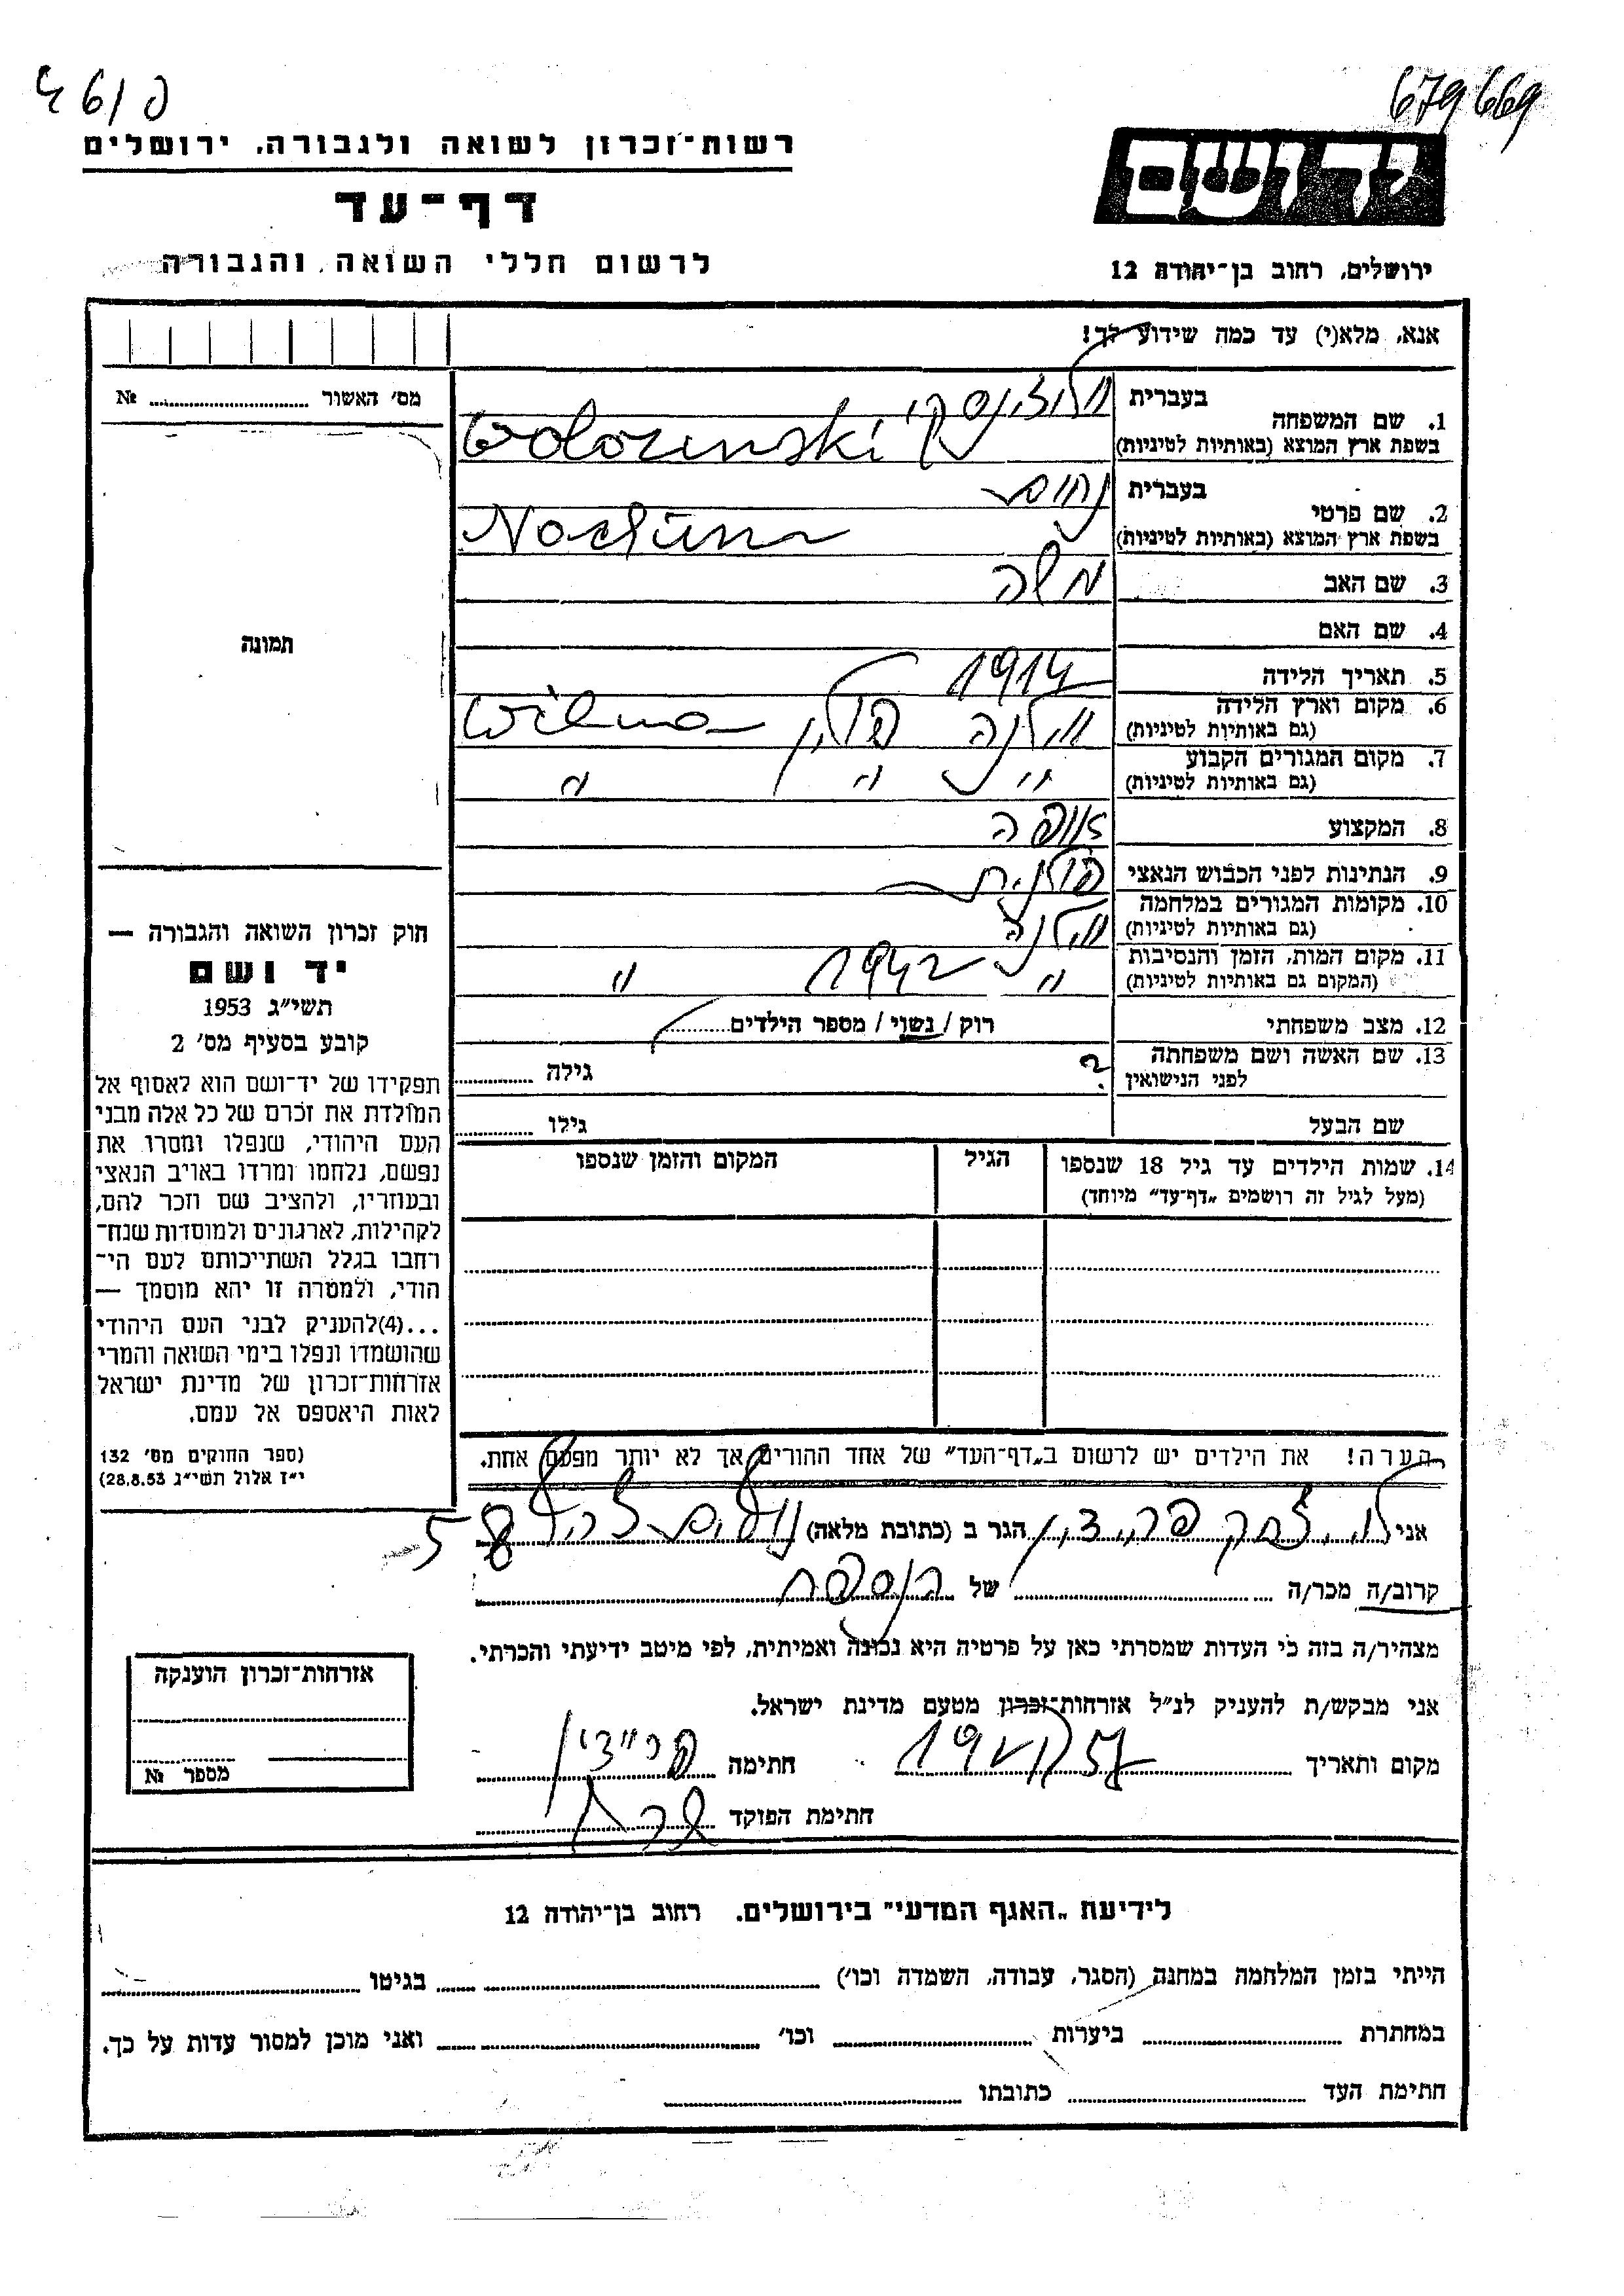 679669
פ/6 46
יד ושם
רשות-זכרון לשואה ולגבורה, ירושלים
דף-עד
לרשום חללי השואה והגבורה
ירושלים, רחוב בן-יהודה 12
אנא, מלא(י) עד כמה שידוע לך!
מס' האשור № ........
1. שם המשפחה בעברית
בשפת ארץ המוצא (באותיות לטיניות) Wolozinski
2. שם פרטי בעברית נחום
בשפת ארץ המוצא (באותיות לטיניות) Nochum
3. שם האב משה
4. שם האם
5. תאריך הלידה 1914
6. מקום וארץ הלידה (גם באותיות לטיניות) וילנה פולין Wilno
7. מקום המגורים הקבוע (גם באותיות לטיניות) " " "
8. המקצוע אופה
9. הנתינות לפני הכבוש הנאצי פולנית
10. מקומות המגורים במלחמה (גם באותיות לטיניות) וילנה
11. מקום המות, הזמן והנסיבות (המקום גם באותיות לטיניות) " 1942 "
12. מצב משפחתי רוק / נשוי / מספר הילדים........
13. שם האשה ושם משפחתה לפני הנישואין ? גילה ........
שם הבעל גילו ........
14. שמות הילדים עד גיל 18 שנספו הגיל המקום והזמן שנספו
(מעל לגיל זה רושמים „דף-עד" מיוחד)
תמונה
חוק זכרון השואה והגבורה —
יד ושם
תשי"ג 1953
קובע בסעיף מס' 2
תפקידו של יד-ושם הוא לאסוף אל
המולדת את זכרם של כל אלה מבני
העם היהודי, שנפלו ומסרו את
נפשם, נלחמו ומרדו באויב הנאצי
ובעוזריו, ולהציב שם וזכר להם,
לקהילות, לארגונים ולמוסדות שנח-
רבו בגלל השתייכותם לעם הי-
הודי, ולמטרה זו יהא מוסמך —
...(4)להעניק לבני העם היהודי
שהושמדו ונפלו בימי השואה והמרי
אזרחות-זכרון של מדינת ישראל
לאות היאספם אל עמם.
(ספר החוקים מס' 132
י"ז אלול תשי"ג 28.8.53)
הערה! את הילדים יש לרשום ב„דף-העד" של אחד ההורים אך לא יותר מפעם אחת.
אני פרידzin הגר ב (כתובת מלאה) 58
קרוב/ה מכר/ה ........ של הנספה
מצהיר/ה בזה כי העדות שמסרתי כאן על פרטיה היא נכונה ואמיתית, לפי מיטב ידיעתי והכרתי.
אני מבקש/ת להעניק לנ"ל אזרחות-זכרון מטעם מדינת ישראל.
מקום ותאריך חתימה
חתימת הפוקד
אזרחות-זכרון הוענקה
מספר №
לידיעת „האגף המדעי" בירושלים, רחוב בן-יהודה 12
הייתי בזמן המלחמה במחנה (הסגר, עבודה, השמדה וכו') ........ בגיטו ........
במחתרת ........ ביערות ........ וכו' ........ ואני מוכן למסור עדות על כך.
חתימת העד ........ כתובתו ........